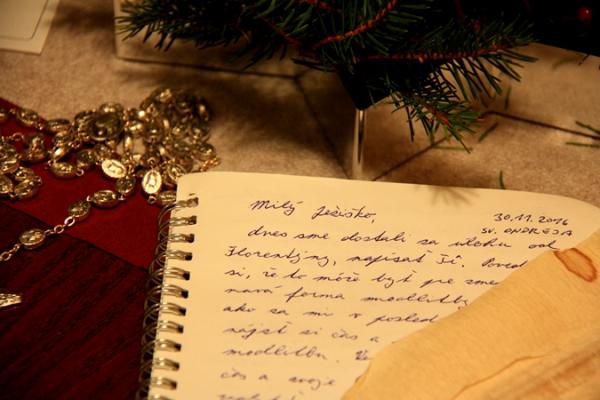 Milý Ježiško,
30.11.2016
SV. ONDREJA
dnes sme dostali za úlohu od
Florentíny, napísať Ti.
si, že to môže byť pre
nová forma modlitby
ako sa mi v
nájsť si čas a
modlitbu.
čas a svoje